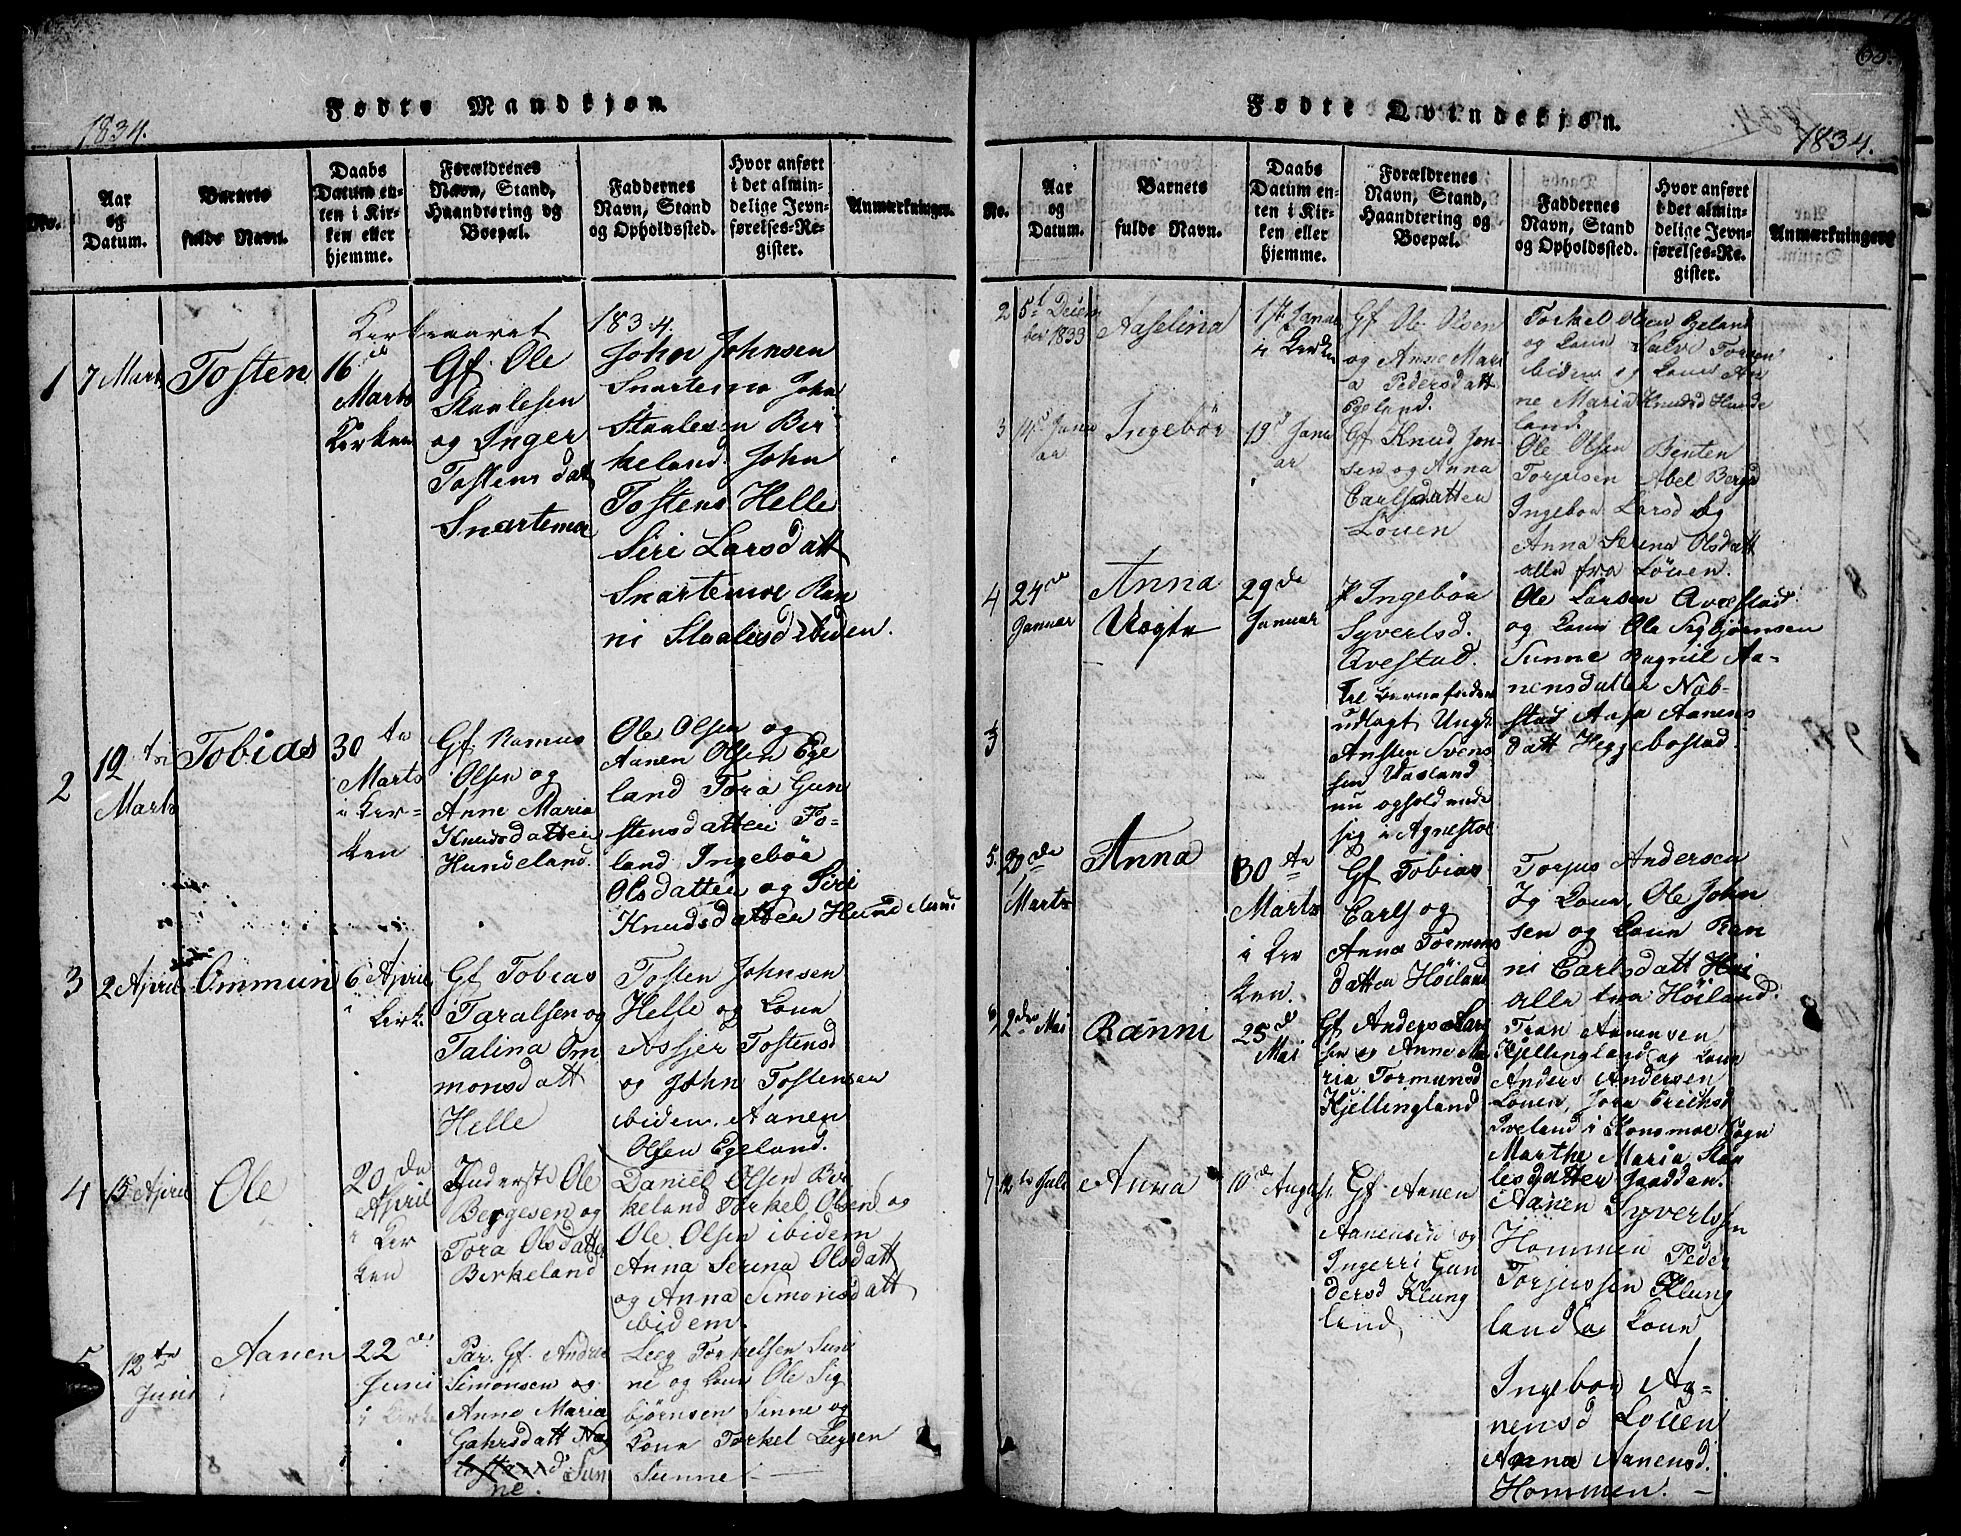 Fødte Mandkjøn.
1834.
No.
Aar
og
Datum.
Barnets
fulde Navn.
Daabs
Datum en-
ten i Kir-
ken eller
hjemme.
Forældrenes
Navn, Stand,
Haandtering og
Boepæl.
Faddernes
Navn, Stand
og Opholdssted.
Hvor anført
i det almin-
delige Jevn-
førelses-Re-
gister.
Anmærkninger.
Kirkeaaret 1834.
1
7 Mart
Tosten
16de
Marts
Kirken
Gf. Ole
Staalesen
og Inger
Tostensdatt
Snartemoe
John Johnsen
Snartemo John
Staalesen Bir
keland. John
Tostens Helle
Siri Larsdatt
Snartemoe Ran
ni Staalesd ibiden.
2
12te
Marts
Tobias
30te
Marts
i Kir-
ken
Gf. Rasmus
Olsen og
Anne Maria
Knudsdatter
Hundeland.
Ole Olsen og
Aanen Olsen Ege
land Tora Gun
stensdatter Fo-
land Ingebør
Olsdatter og Siri
Knudsdatter
3
2 April
Ommun
6 April
i Kirk.
Gf Tobias
Taralsen og
Talina Om
monsdatt
Helle
Tosten Johnsen
Helle og Kone
Assjer Tostensd
og John Tostensen
ibidem. Aanen
Olsen Egeland.
4
15 April
Ole
20de
April
i Kir
ken
Inderste Ole
Bergesen og
Tora Olsdatter
Birkeland
Daniel Olsen Bir
keland Torkel Olsen og
Ole Olsen ibidem
Anna Serina Olsdatt
og Anna Simonsdatt
ibidem.
5
12te
Juni
Aanen
22de
Juni
i Kirke
Par. Gf. Andrea
Simonsen og
Anne Maria
Gahrsdatt
Sun
ne.
Leeg Torkelsen Sun
ne og Kone Ole Sig
bjørnsen Sunne og
Kone Torkel Leegsen
Sunne
Fødte Qvindekjøn.
1834.
No.
Aar
og
Datum.
Barnets
fulde Navn.
Daabs
Datum en-
ten i Kir-
ken eller
hjemme.
Forældrenes
Navn, Stand,
Haandtering og
Boepæl.
Faddernes
Navn, Stand
og Opholdssted.
Hvor anført
i det almin-
delige Jevn-
førelses-Re-
gister.
Anmærkninger
2
5t Decem
ber 1833
Aaselina
17 Janu
i Kirke
Gf Ole Olsen
og Anne Mari
a Pedersdatt
Egeland.
Torkel Olsen Egeland
og Kone Salve
ibidem og Kone An
ne Maria Knudsd Hunde
land.
3
Janu
ar
Ingebør
19d Janu
ar
Gf Knud Jon
sen og Anna
Carlsdatter
Løuen
Ole Olsen Benten
Torjussen Abel
Ingebor Larsd og
Anna Serina Olsdatt
alle fra Løuen.
4
24de
Januar
Anna
Uegte
29de
Januar
P Ingebør
Syvertsd.
Avestad.
til
udlagt Ungk
Austen Svens
sen Vasland
nu opholdende
sig i Agnestoe
Ole Larsen Avestad
og Kone Ole Sigbjørnsen
Sunne Bagnil Aa-
nensdatter Nab-
stad Aasa Aanens
datt Heggebostad.
5.
20de
Marts
Anna
30te
Marts
i Kir
ken.
Gf Tobias
Carls og
Anna Tormons
datter Høiland
Torjus Andersen
og Kone, Ole John
sen og Kone Ran
ni Carlsdatt
alle fra Høiland.
6
2den Mai
Ranni
25de
Mai
Gf Anders Lar
sen og Anne Ma
ria Tormunsd
Kjellingland
Tron Aanensen
Kjellingland og Kone
Anders Andersen
Løuen, Jora Erichsd
Iveland i Konsmoe Sogn
Marthe Maria Staa
lesdatter Gaadden.
7
12te Juli
Anna
10de August
Gf. Aanen
Aanensen og
Ingerri Gun
dersd Klung
land
Aanen Syvertsen
Hommen Peder
Torjussen Klung
land og Kone
Ingebor Aa-
nensd Løuen
Anna Aanensd.
Hommen.